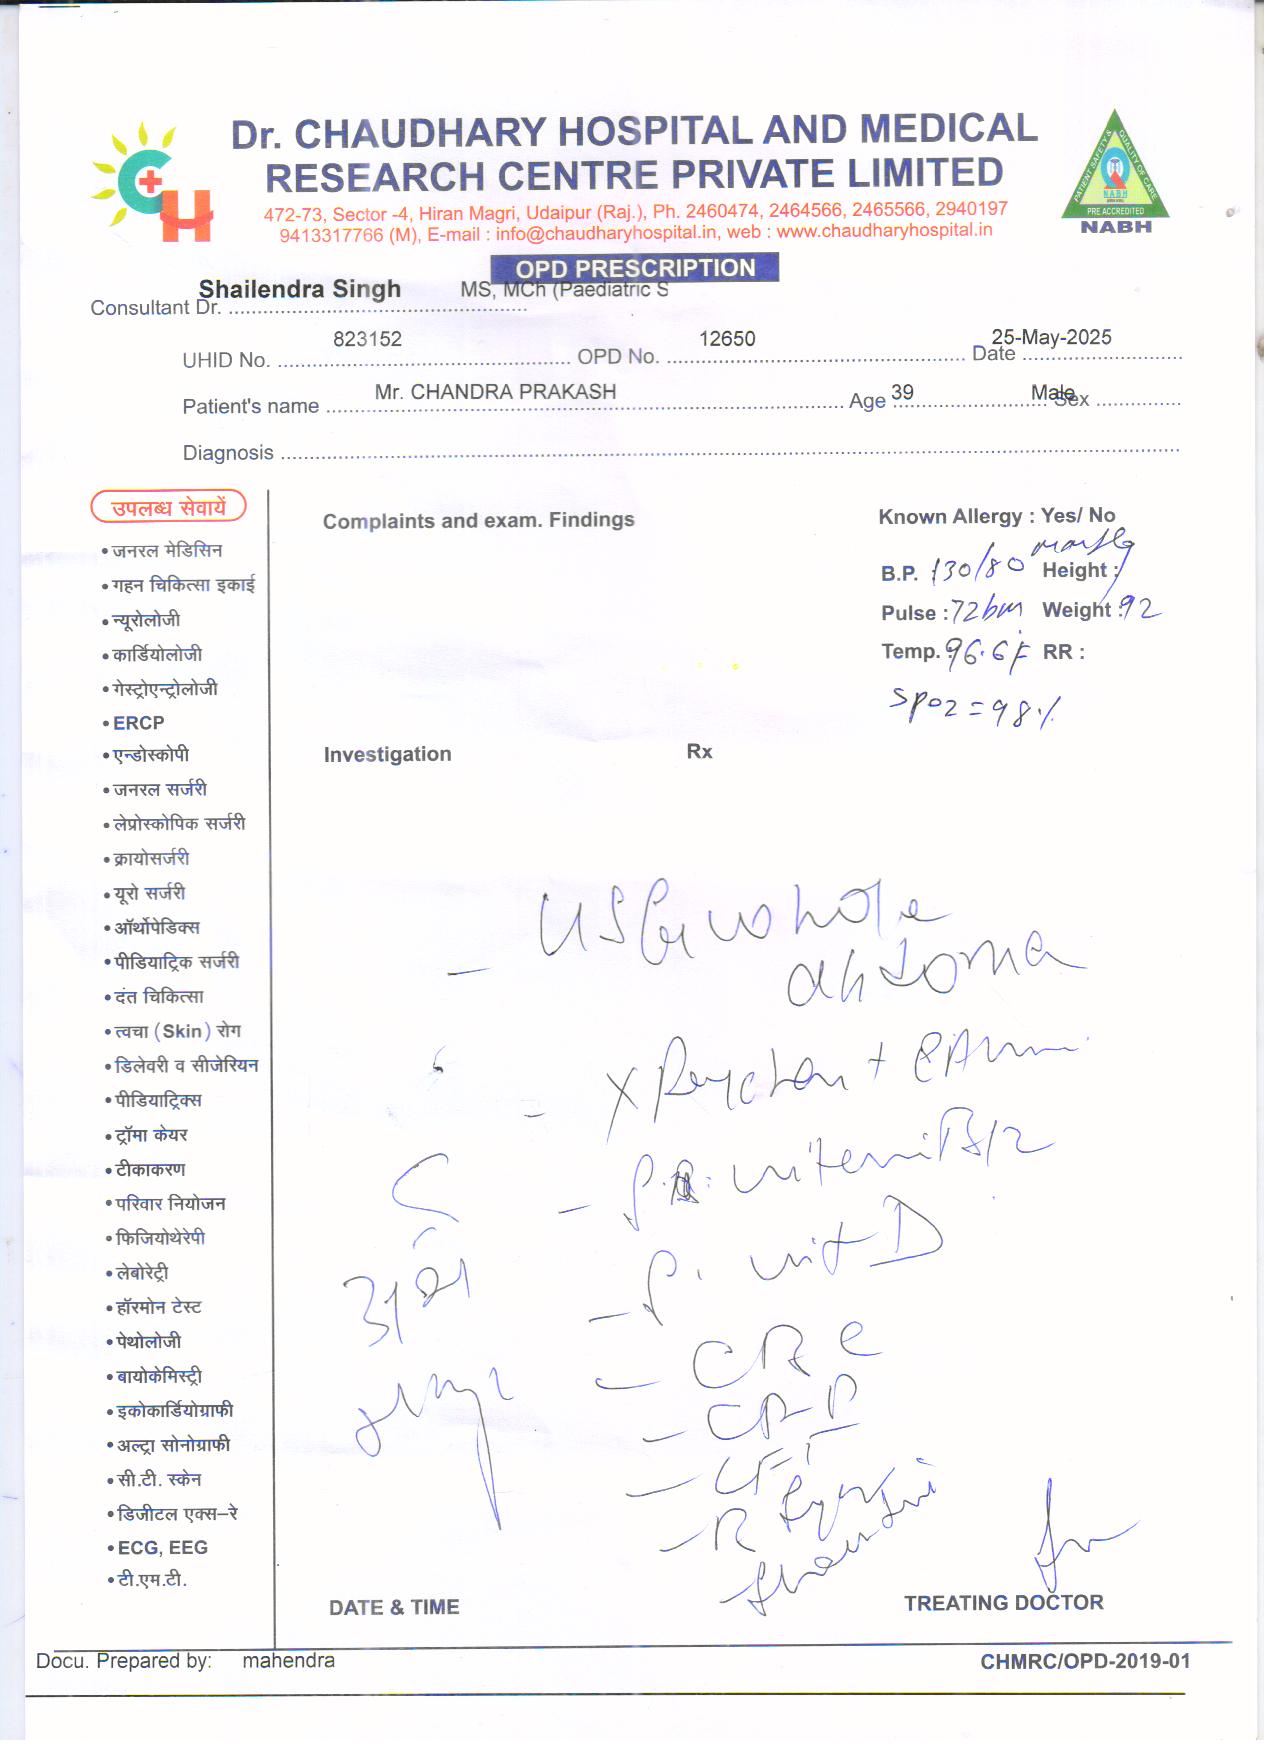 Dr. CHAUDHARY HOSPITAL AND MEDICAL
RESEARCH CENTRE PRIVATE LIMITED
472-73, Sector -4, Hiran Magri, Udaipur (Raj.), Ph. 2460474, 2464566, 2465566, 2940197
9413317766 (M), E-mail : info@chaudharyhospital.in, web : www.chaudharyhospital.in
CH
PATIENT SAFETY & QUALITY OF CARE
NABH
PRE ACCREDITED
NABH
OPD PRESCRIPTION
Consultant Dr. Shailendra Singh MS, MCh (Paediatric S
UHID No. 823152 OPD No. 12650 Date 25-May-2025
Patient's name Mr. CHANDRA PRAKASH Age 39 Sex Male
Diagnosis
उपलब्ध सेवायें
•जनरल मेडिसिन
•गहन चिकित्सा इकाई
•न्यूरोलोजी
•कार्डियोलोजी
•गेस्ट्रोएन्ट्रोलोजी
•ERCP
•एन्डोस्कोपी
•जनरल सर्जरी
•लेप्रोस्कोपिक सर्जरी
•क्रायोसर्जरी
•यूरो सर्जरी
•ऑर्थोपेडिक्स
•पीडियाट्रिक सर्जरी
•दंत चिकित्सा
•त्वचा (Skin) रोग
•डिलेवरी व सीजेरियन
•पीडियाट्रिक्स
•ट्रॉमा केयर
•टीकाकरण
•परिवार नियोजन
•फिजियोथेरेपी
•लेबोरेट्री
•हॉरमोन टेस्ट
•पेथोलोजी
•बायोकेमिस्ट्री
•इकोकार्डियोग्राफी
•अल्ट्रा सोनोग्राफी
•सी.टी. स्केन
•डिजीटल एक्स-रे
•ECG, EEG
•टी.एम.टी.
Complaints and exam. Findings
Known Allergy : Yes/ No
B.P. 130/80 mmHg Height :
Pulse : 72bm Weight : 92
Temp. : 96.6 F RR :
SPO2 = 98%
Investigation Rx
- USG whole
- X Ray +
- S. B12
- S. vit D
- CRP
- R
DATE & TIME
TREATING DOCTOR
Docu. Prepared by: mahendra
CHMRC/OPD-2019-01